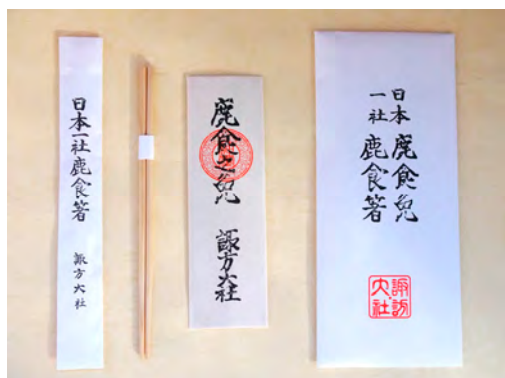 日本一社鹿食箸
諏方大社
鹿食之免
諏方大社
日本一社
鹿食免
鹿食箸
諏訪大社